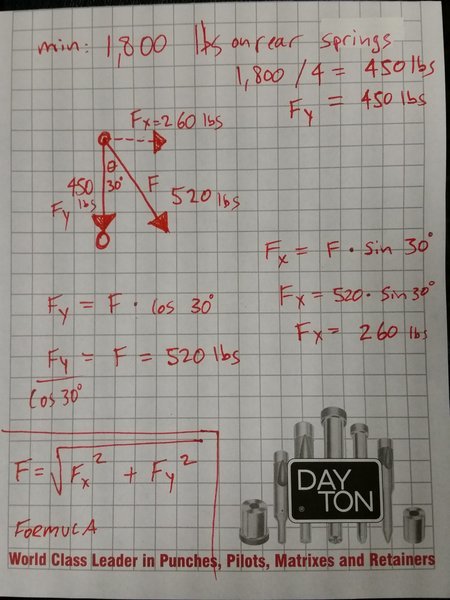 min: 1,800 lbs on rear springs
1,800 / 4 = 450 lbs
Fy = 450 lbs
Fx = 260 lbs
θ
30°
450 lbs
Fy
F
520 lbs
Fx = F · sin 30°
Fx = 520 · sin 30°
Fx = 260 lbs
Fy = F · cos 30°
Fy = F = 520 lbs
cos 30°
F = √Fx² + Fy²
FORMULA
DAY
TON
®
World Class Leader in Punches, Pilots, Matrixes and Retainers